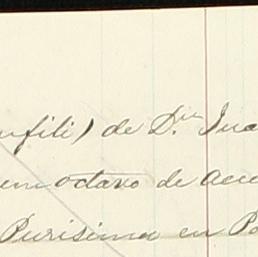 nfili) de D.n Jua
un octavo de acc
Purisima en Po